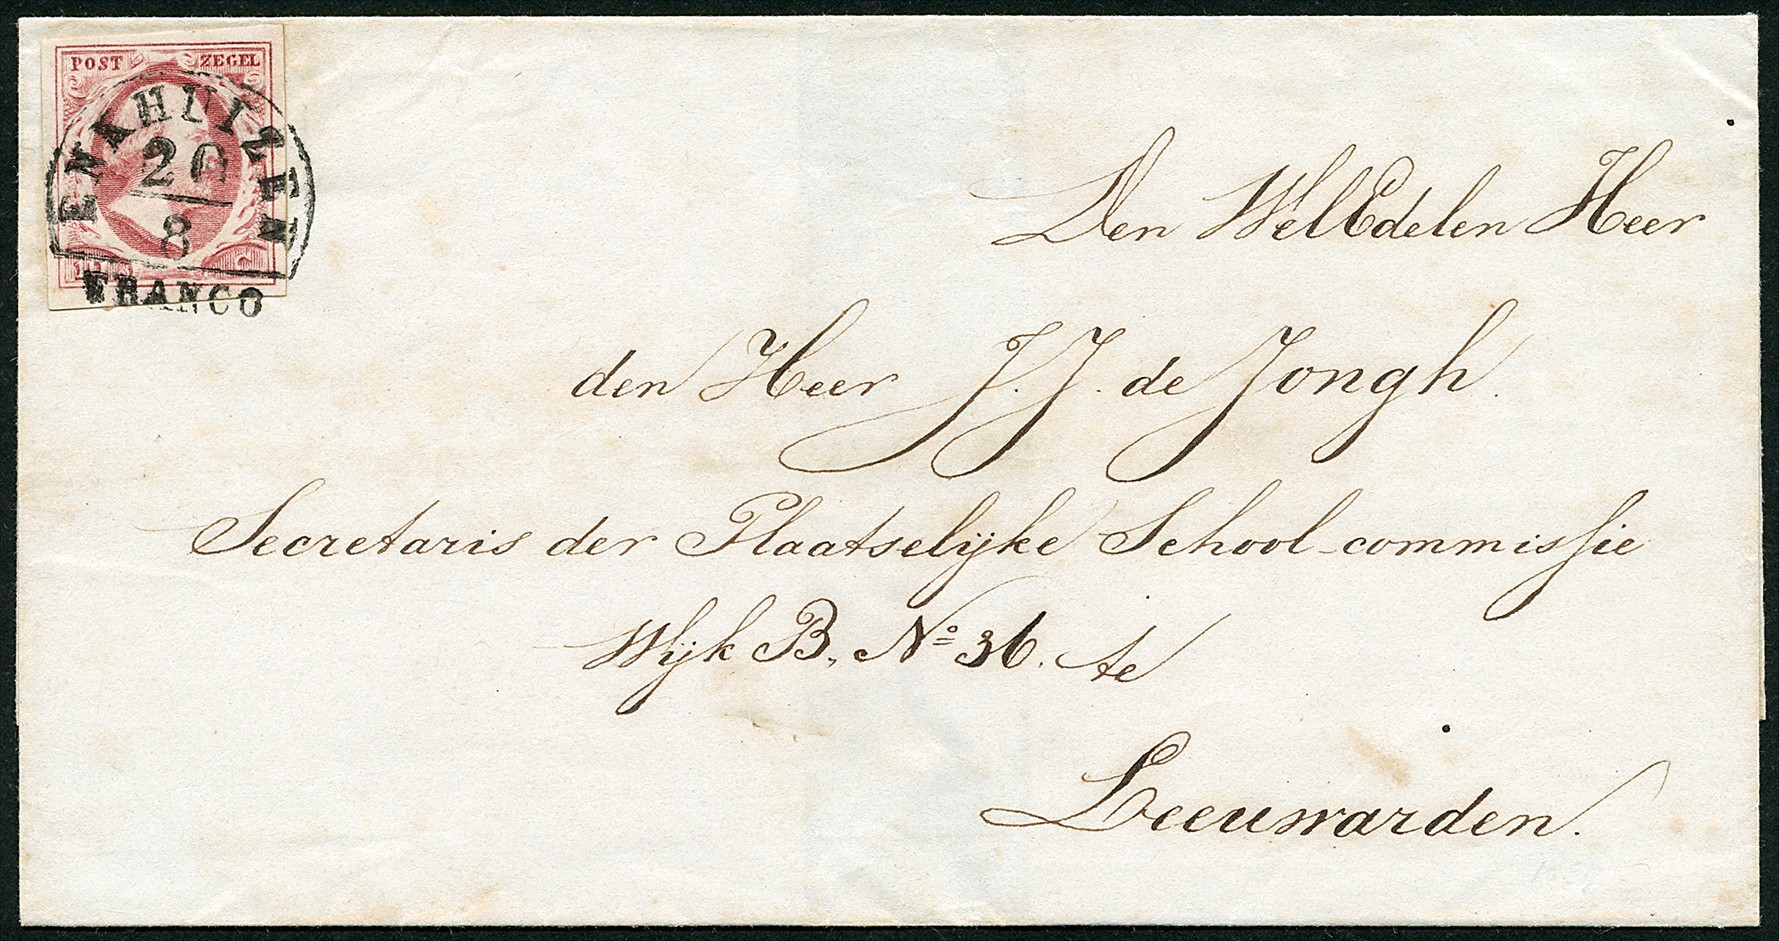 POST ZEGEL
ENKHUIZEN
20
8
FRANCO
Den WelEdelen Heer
den Heer J. J. de Jongh.
Secretaris der Plaatselijke School-commissie
Wijk B, No 36. te
Leeuwarden.